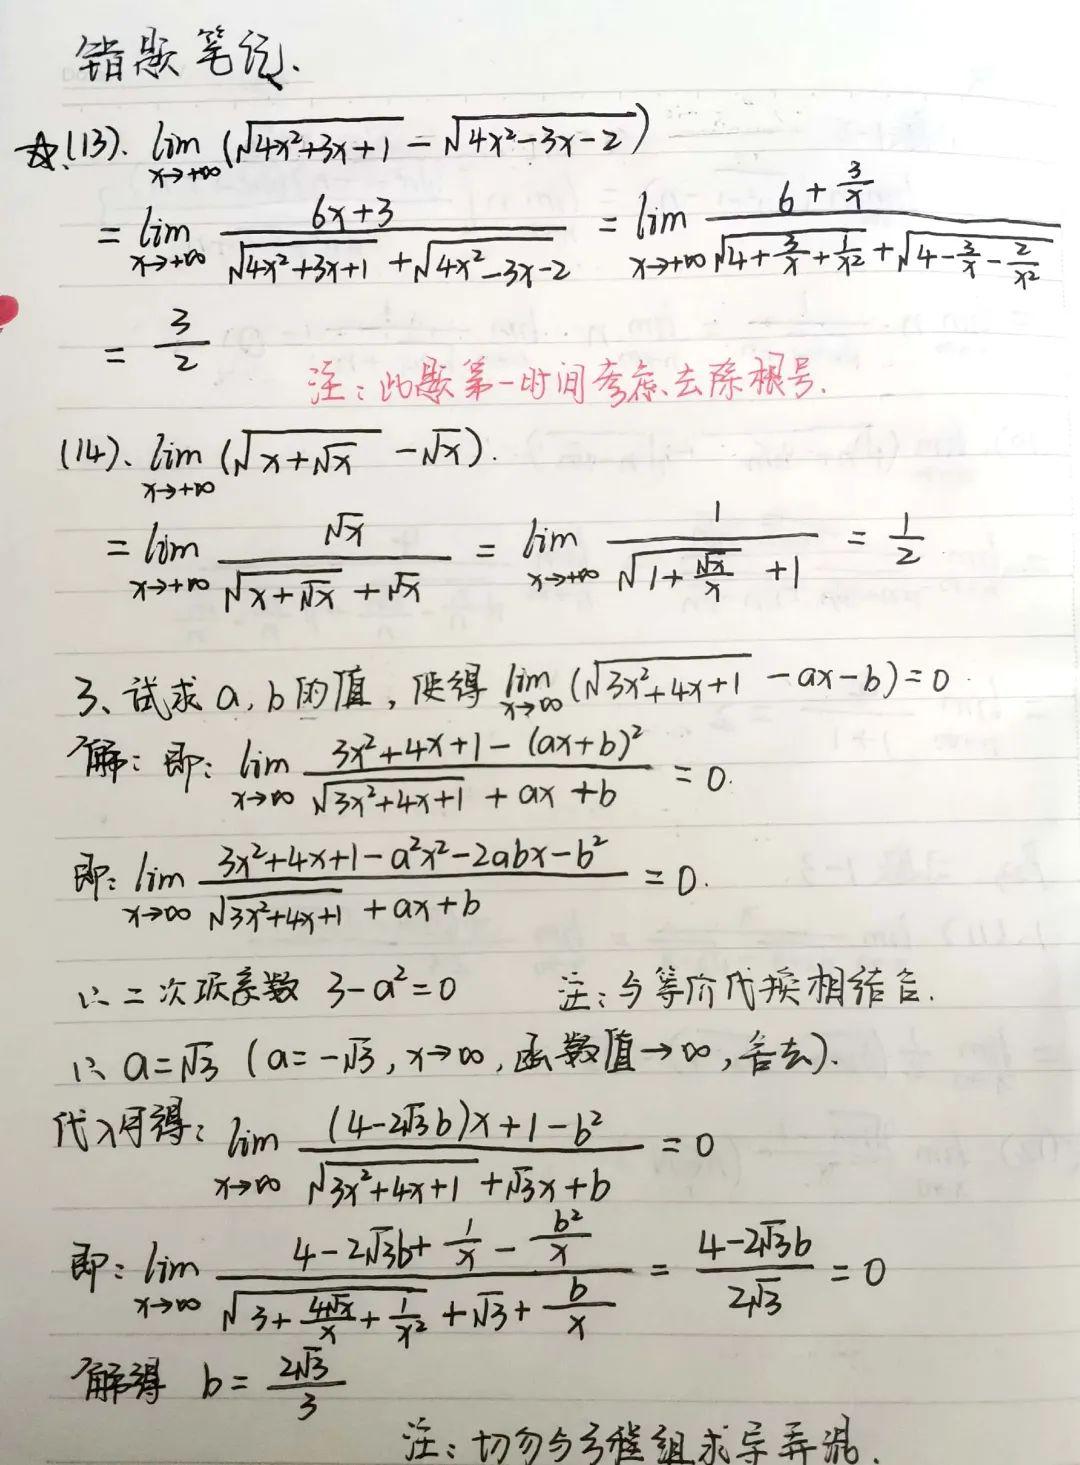 错题笔记.
☆(13). lim x→+∞ (√(4x²+3x+1) − √(4x²−3x−2))
= lim x→+∞ (6x+3)/(√(4x²+3x+1) + √(4x²−3x−2)) = lim x→+∞ (6+3/x)/(√(4+3/x+1/x²) + √(4−3/x−2/x²))
= 3/2
注:此题第一时间考虑去除根号.
(14). lim x→+∞ (√(x+√x) − √x).
= lim x→+∞ √x/(√(x+√x) + √x) = lim x→+∞ 1/(√(1+√x/x) + 1) = 1/2
3、试求a,b的值,使得 lim x→∞ (√(3x²+4x+1) − ax − b) = 0.
解:即: lim x→∞ (3x²+4x+1−(ax+b)²)/(√(3x²+4x+1) + ax + b) = 0.
即: lim x→∞ (3x²+4x+1−a²x²−2abx−b²)/(√(3x²+4x+1) + ax+b) = 0.
∴二次项系数 3−a²=0 注:与等价代换相结合.
∴ a=√3 (a=−√3, x→∞, 函数值→∞, 舍去).
代入可得: lim x→∞ ((4−2√3b)x+1−b²)/(√(3x²+4x+1) + √3x+b) = 0
即: lim x→∞ (4−2√3b+1/x−b²/x)/(√(3+4√x/x+1/x²) + √3 + b/x) = (4−2√3b)/(2√3) = 0
解得 b = 2√3/3
注:切勿与方程组求导弄混.